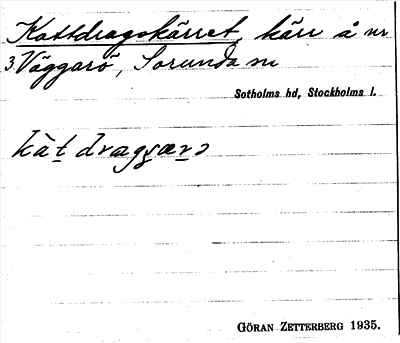 Kattdragskärret, kärr å nr
3 Väggarö, Sorunda sn
Sotholms hd, Stockholms l.
kàt dragsær
GÖRAN ZETTERBERG 1935.